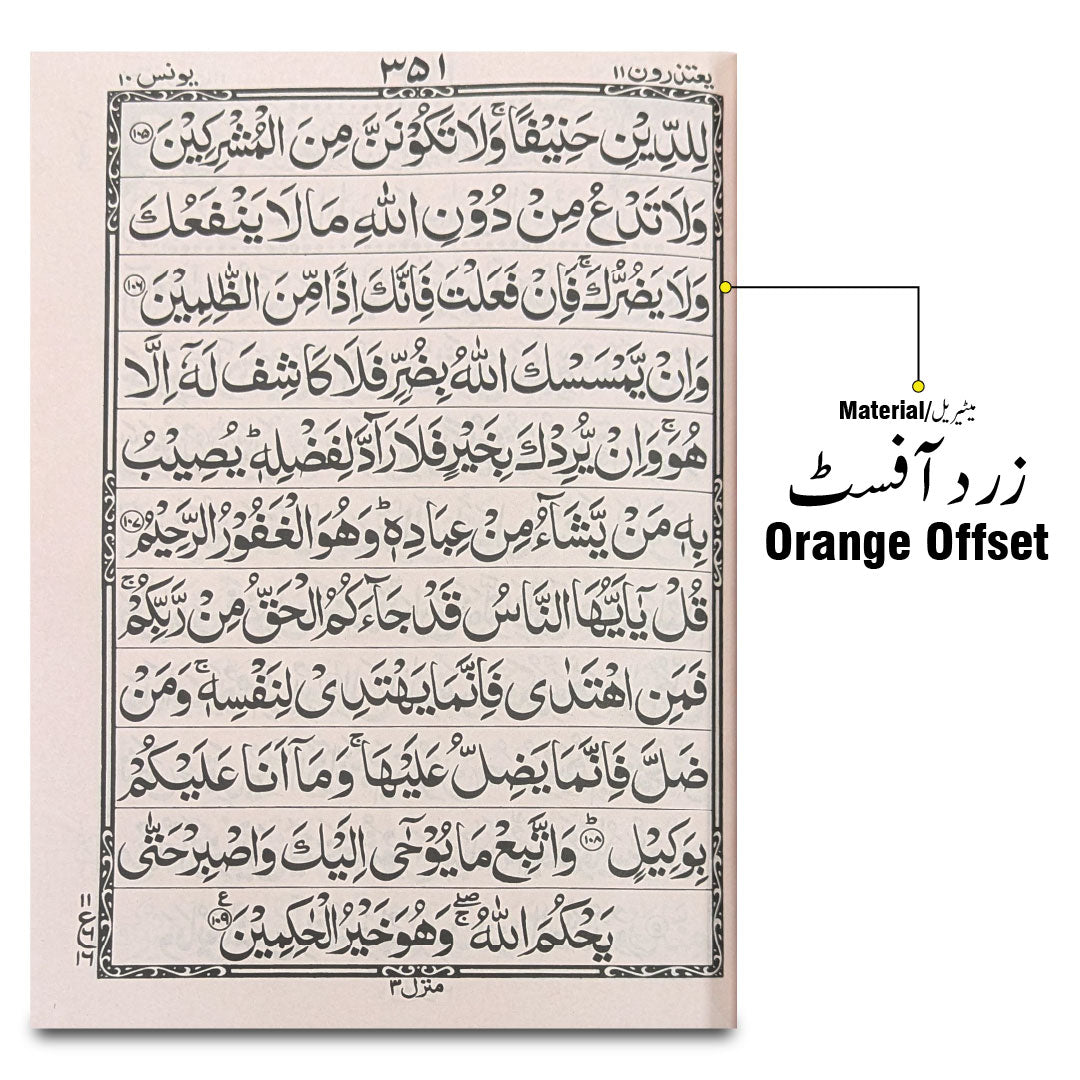 یعتذرون ۱۱
۳۵۱
یونس ۱۰
لِلدِّيْنِ حَنِيْفًا ۚ وَلَا تَكُوْنَنَّ مِنَ الْمُشْرِكِيْنَ ۝۱۰۵
وَلَا تَدْعُ مِنْ دُوْنِ اللّٰهِ مَا لَا يَنْفَعُكَ
وَلَا يَضُرُّكَ ۚ فَاِنْ فَعَلْتَ فَاِنَّكَ اِذًا مِّنَ الظّٰلِمِيْنَ ۝۱۰۶
وَاِنْ يَّمْسَسْكَ اللّٰهُ بِضُرٍّ فَلَا كَاشِفَ لَهٗۤ اِلَّا
هُوَ ۚ وَاِنْ يُّرِدْكَ بِخَيْرٍ فَلَا رَآدَّ لِفَضْلِهٖ ؕ يُصِيْبُ
بِهٖ مَنْ يَّشَآءُ مِنْ عِبَادِهٖ ؕ وَهُوَ الْغَفُوْرُ الرَّحِيْمُ ۝۱۰۷
قُلْ يٰۤاَيُّهَا النَّاسُ قَدْ جَآءَكُمُ الْحَقُّ مِنْ رَّبِّكُمْ ۚ
فَمَنِ اهْتَدٰى فَاِنَّمَا يَهْتَدِىْ لِنَفْسِهٖ ۚ وَمَنْ
ضَلَّ فَاِنَّمَا يَضِلُّ عَلَيْهَا ۚ وَمَاۤ اَنَا عَلَيْكُمْ
بِوَكِيْلٍ ؕ ۝۱۰۸ وَاتَّبِعْ مَا يُوْحٰۤى اِلَيْكَ وَاصْبِرْ حَتّٰى
يَحْكُمَ اللّٰهُ ۖۚ وَهُوَ خَيْرُ الْحٰكِمِيْنَ ۝۱۰۹ ع
منزل ۳
Material/میٹیریل
زرد آفسٹ
Orange Offset